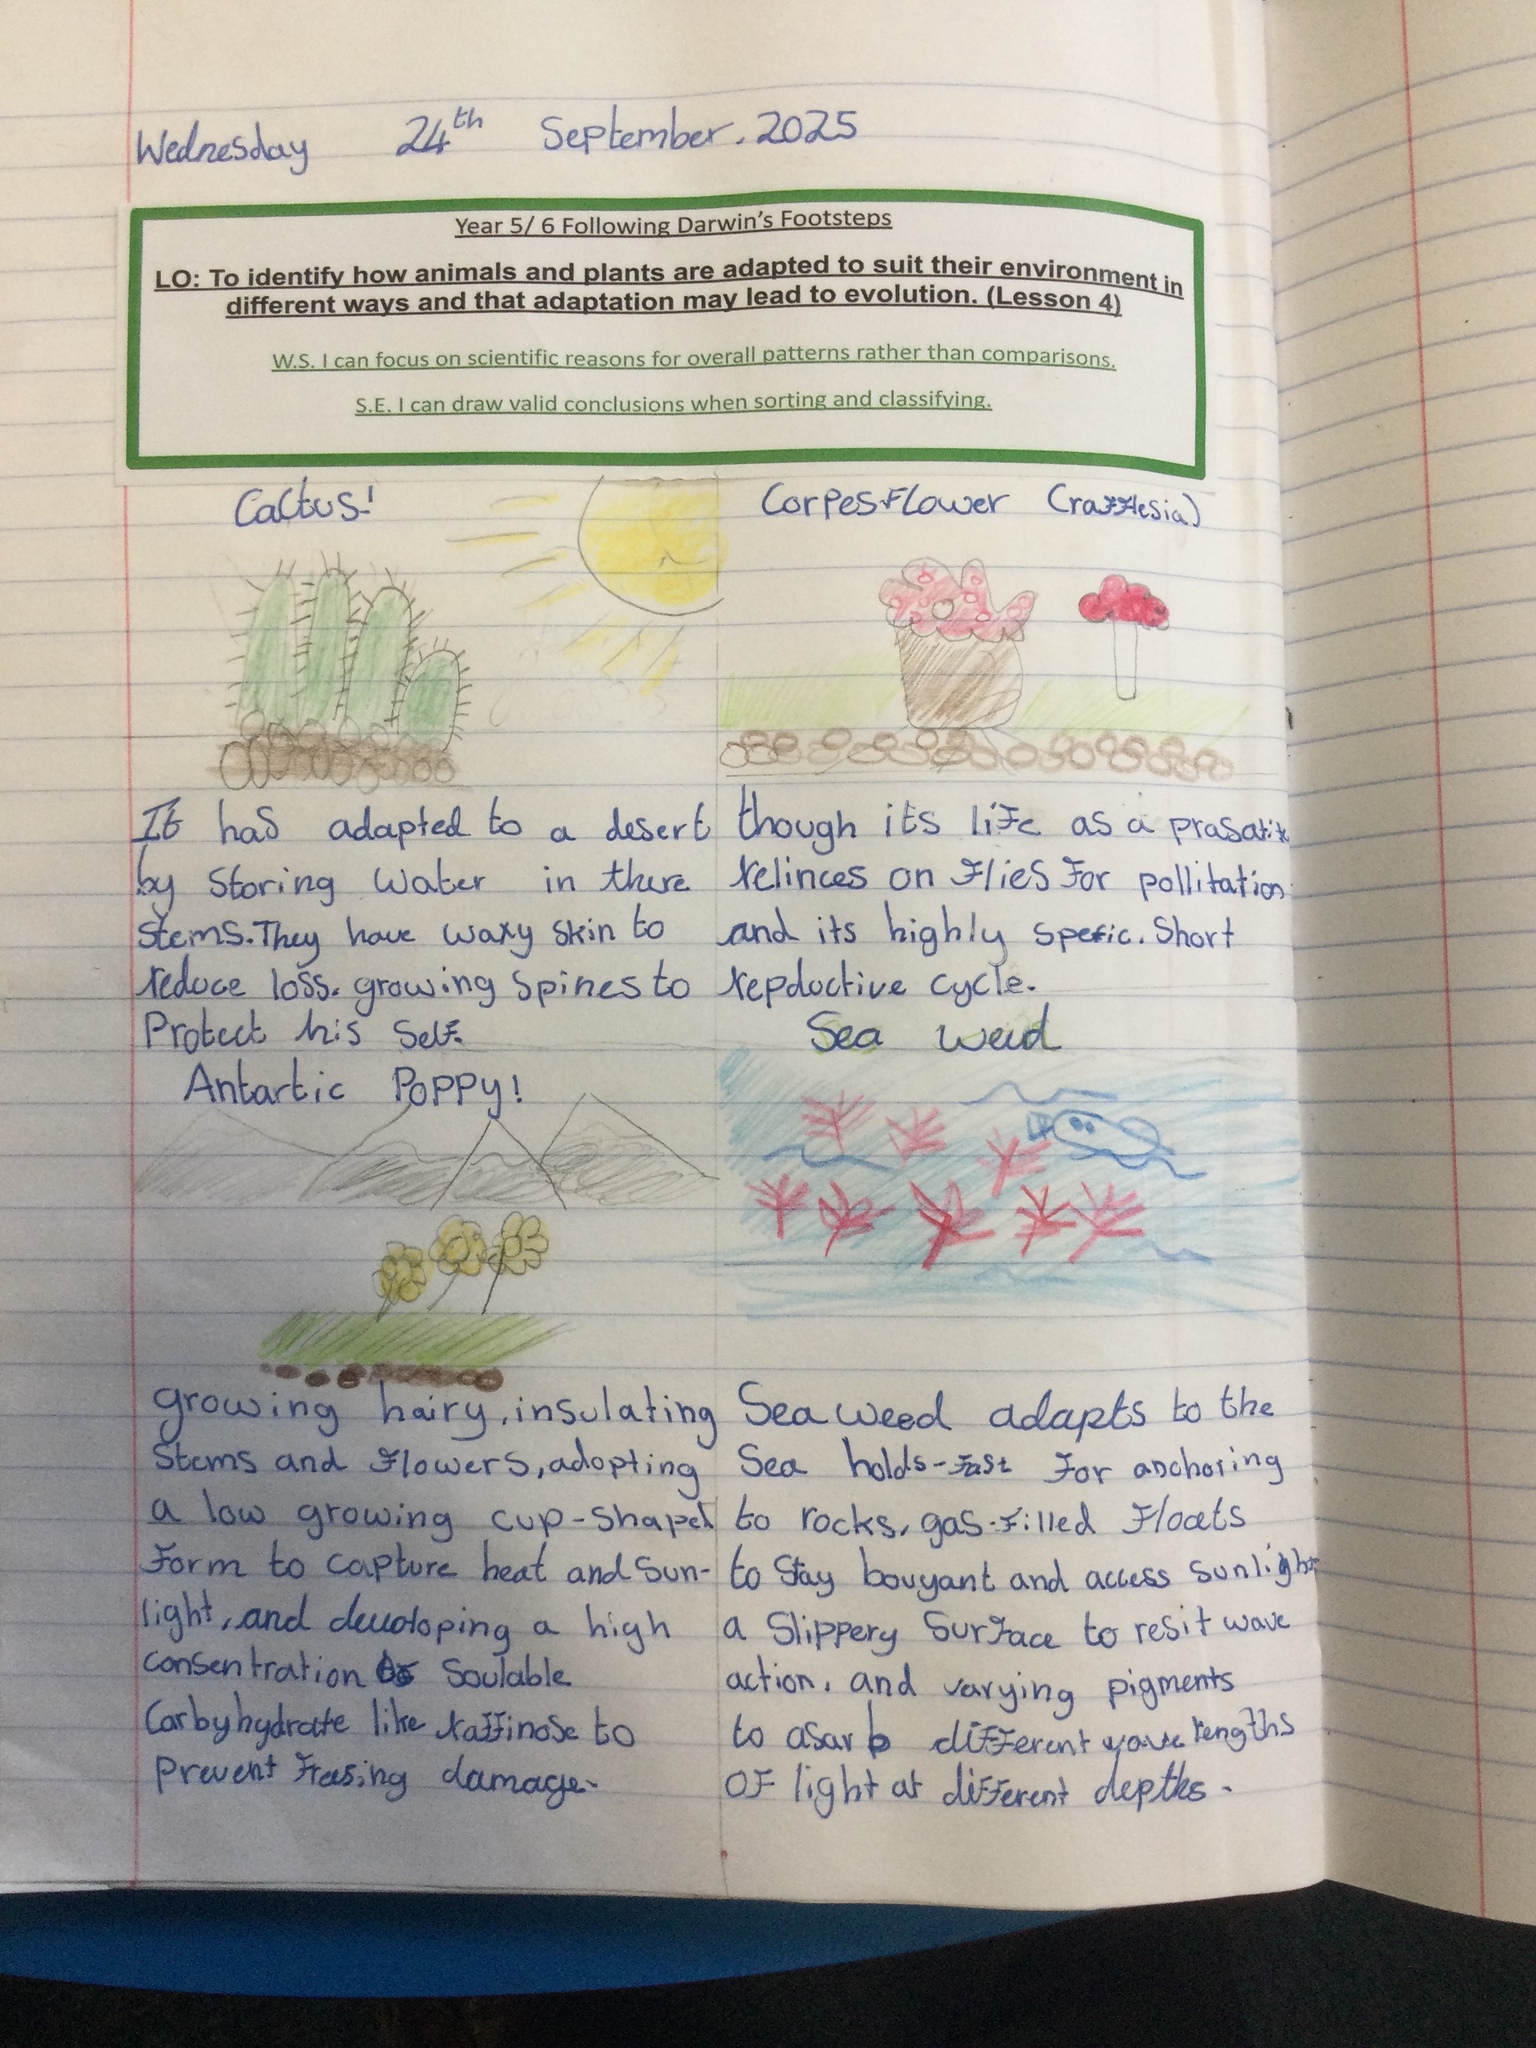 Wednesday 24th September. 2025
Year 5/ 6 Following Darwin's Footsteps
LO: To identify how animals and plants are adapted to suit their environment in
different ways and that adaptation may lead to evolution. (Lesson 4)
W.S. I can focus on scientific reasons for overall patterns rather than comparisons.
S.E. I can draw valid conclusions when sorting and classifying.
Cactus!
It has adapted to a desert
by storing water in there
stems. They have waxy skin to
reduce loss. growing spines to
Protect his self.
Corpesflower (rafflesia)
though its life as a prasatite
relinces on flies for pollitation
and its highly spefic. Short
repductive cycle.
Antartic Poppy!
growing hairy, insulating
stems and flowers, adopting
a low growing cup-shaped
form to capture heat and sun-
light, and devoloping a high
consentration of soulable
Carbyhydrate like raffinose to
prevent freasing damage.
Sea weed
Sea weed adapts to the
Sea holds-fast for anchoring
to rocks, gas-filled floats
to stay bouyant and access sunlight
a slippery surface to resit wave
action, and varying pigments
to asarb different wave lengths
of light at different depths.